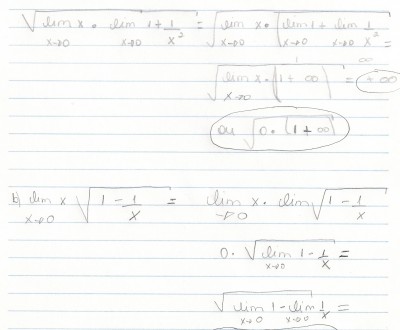 √(lim x→0 x · lim x→0 1 + 1/x²) = √(lim x→0 x · (lim x→0 1 + lim x→0 1/x² =
1 ∞
√(lim x→0 x · (1 + ∞)) = +∞
ou √(0 · (1 + ∞))
b) lim x→0 x √(1 - 1/x) = lim →0 x · lim √(1 - 1/x)
0 · √(lim x→0 1 - 1/x) =
√(lim x→0 1 - lim x→0 1/x) =